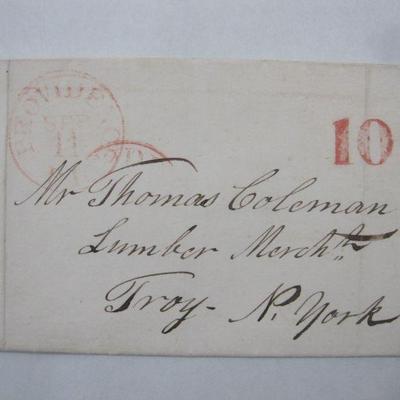 PROVIDENC
SEP
11
10
Mr Thomas Coleman
Lumber Mercht.
Troy - N. York